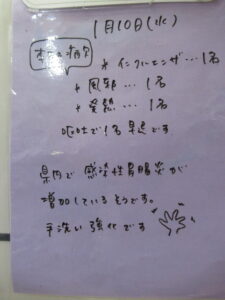 1月10日(水)
本日の病欠
* インフルエンザ…1名
* 風邪…1名
* 発熱…1名
嘔吐で1名早退です
県内で感染性胃腸炎が
増加しているそうです。
手洗い強化です